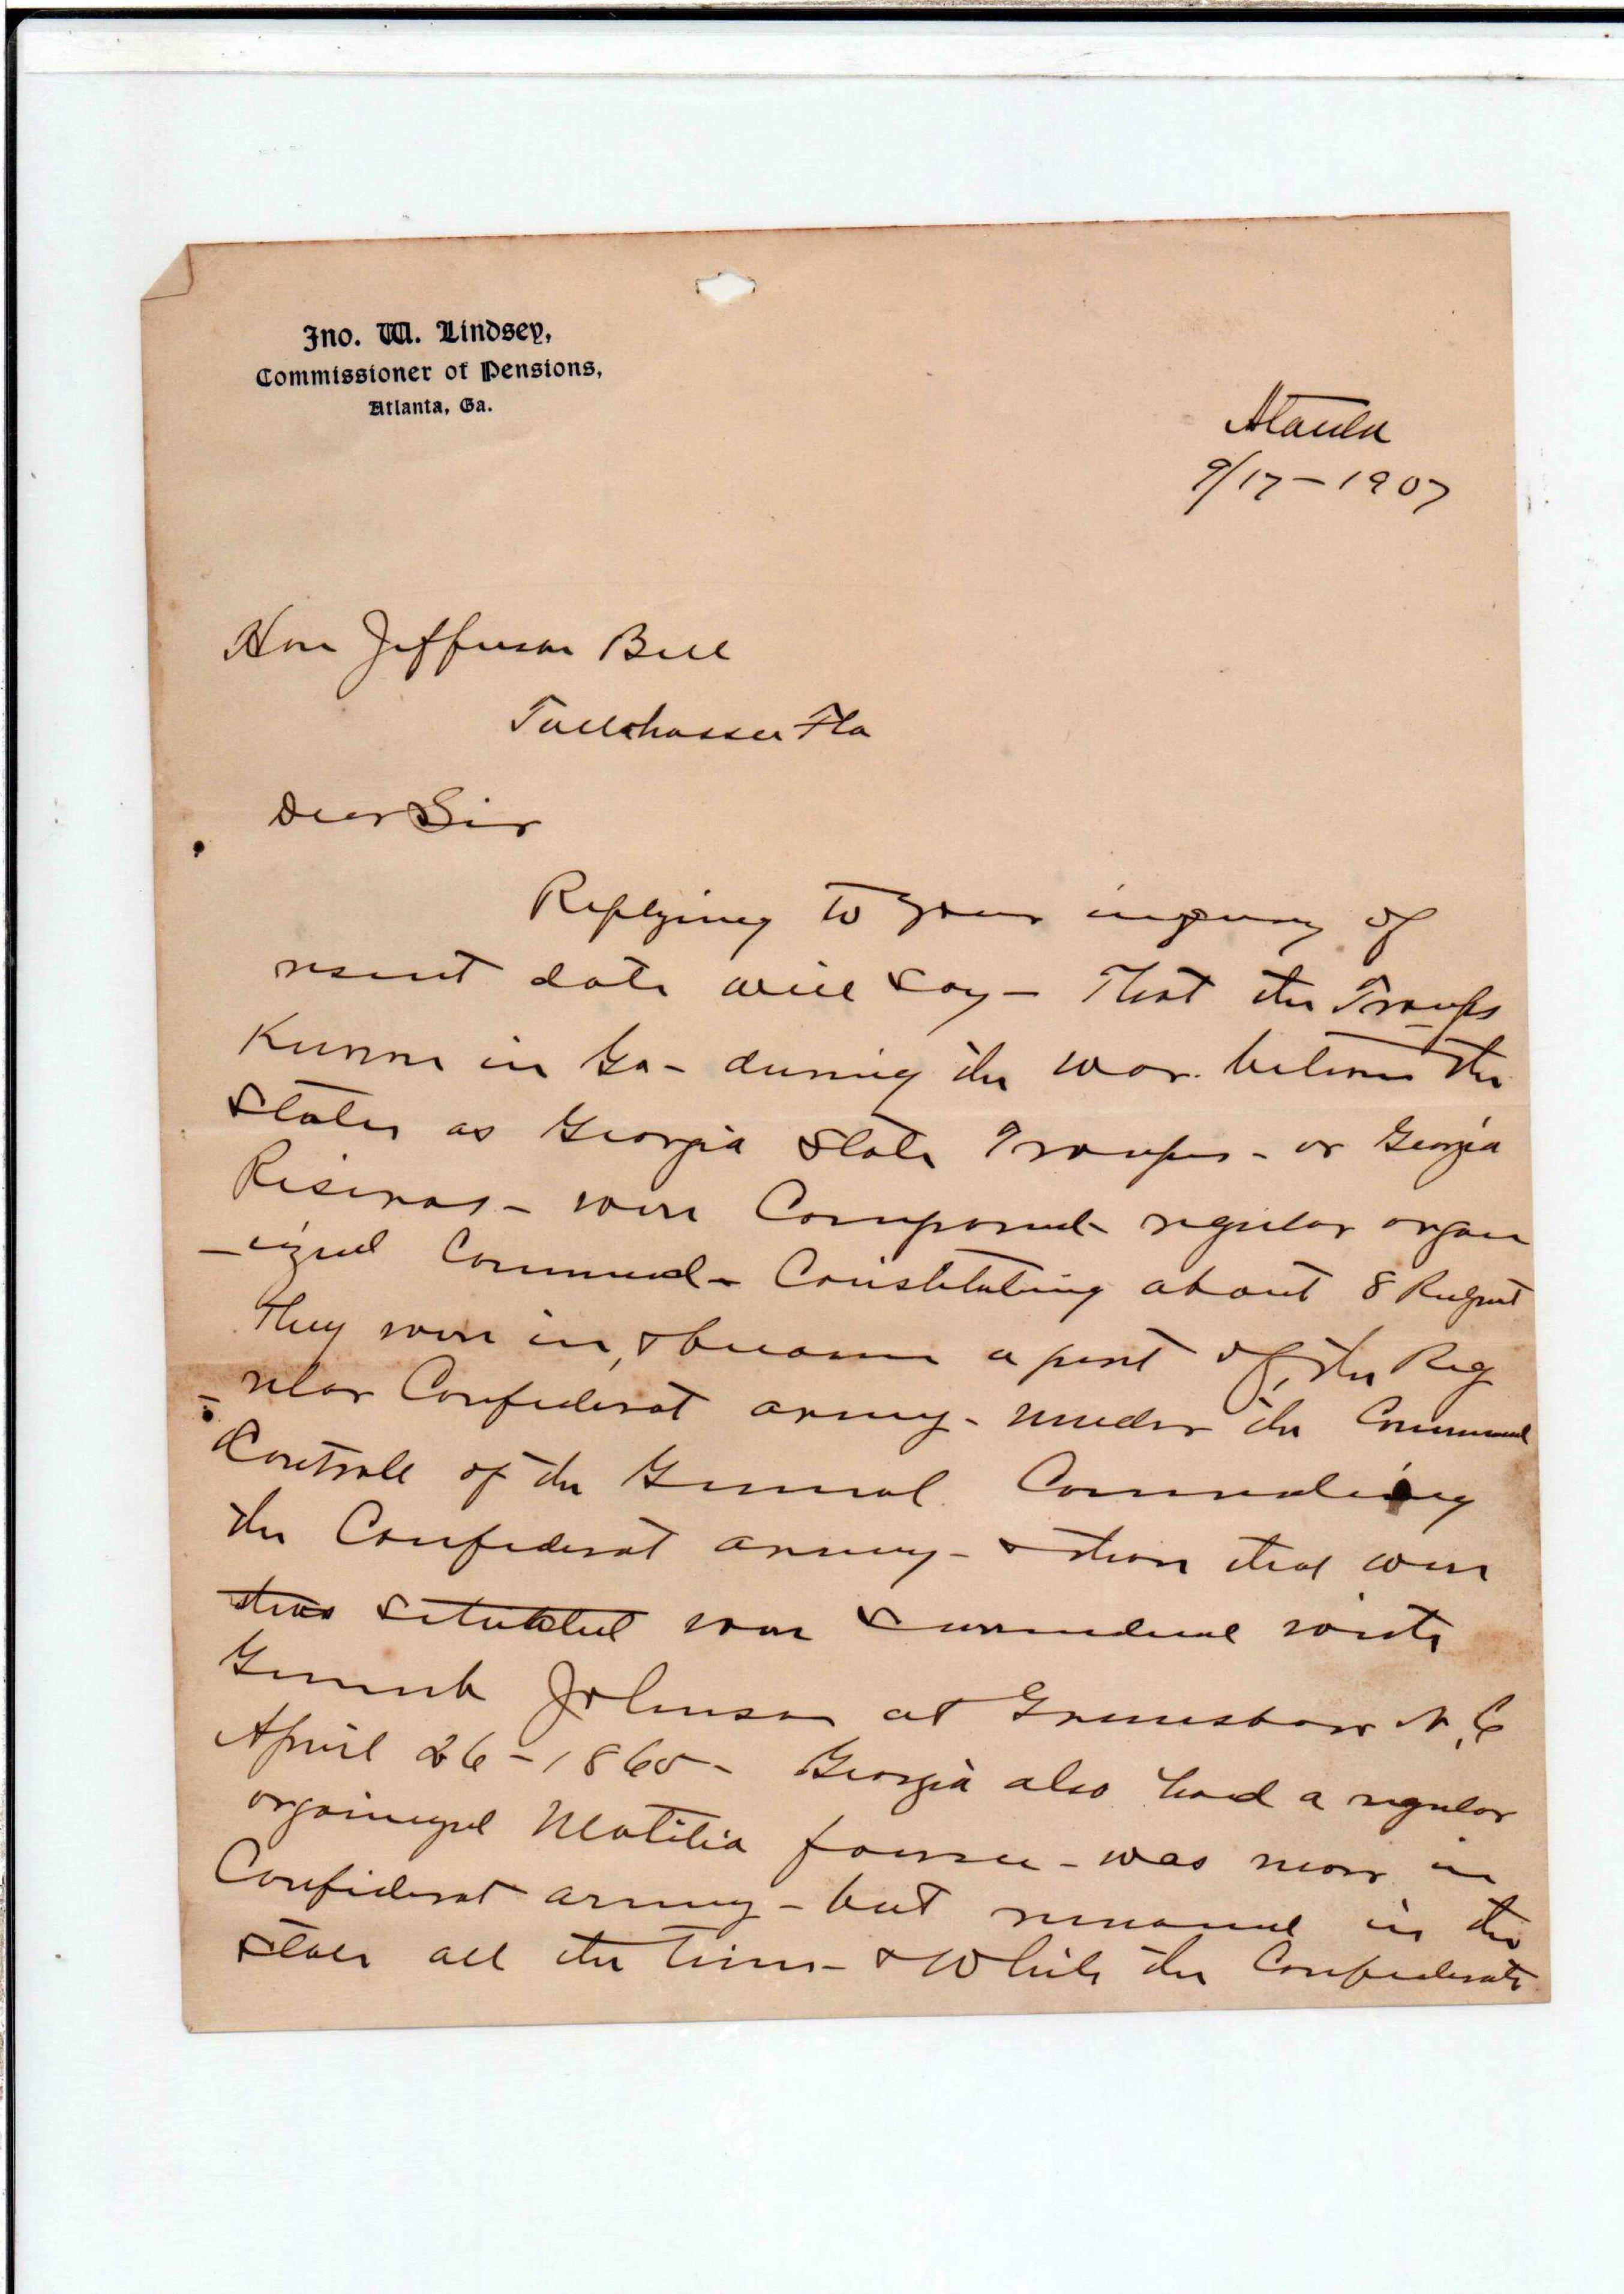 Jno. W. Lindsey,
Commissioner of Pensions,
Atlanta, Ga.
Atlanta
9/17-1907
Hon Jefferson Bell
Tallahassee Fla
Dear Sir
Replying to your inquiry of
resent date will say - That the Troops
Known in Ga - during the war between the
States as Georgia State Troops - or Georgia
Reserves - were Composed regular organ
-ized Command - Constituting about 8 Regmt
They were in, & became a part of, the Reg
-ular Confederat army - under the Command
Controle of the General Commanding
the Confederat army - & those that were
thus situated were surrendered with
General Johnson at Greensboro N.C
April 26 - 1865 - Georgia also had a regular
organized Matilia - was never in
Confederat army - but remained in the
State all the time - & While the Confederate